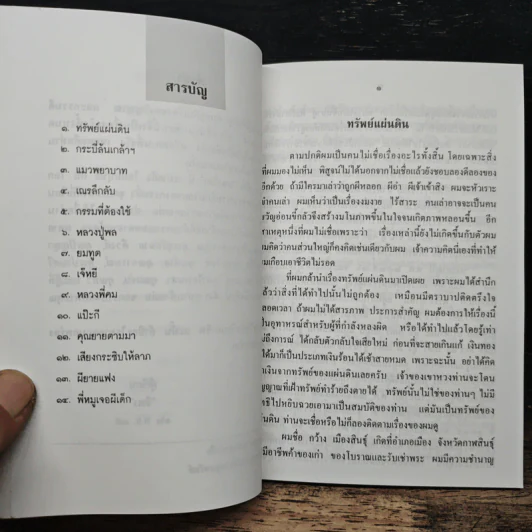 สารบัญ
๑. ทรัพย์แผ่นดิน
๒. กระบี่ล้นเกล้าฯ
๓. แมวพยาบาท
๔. เณรลึกลับ
๕. กรรมที่ต้องใช้
๖. หลวงปู่พล
๗. ยมทูต
๘. เจ๊หยี
๙. หลวงพี่คม
๑๐. แป๊ะกี
๑๑. คุณยายตามมา
๑๒. เสียงกระซิบให้ลาภ
๑๓. ผียายแฟง
๑๔. พี่หมูเจอผีเด็ก
๑
ทรัพย์แผ่นดิน
ตามปกติผมเป็นคนไม่เชื่อเรื่องอะไรทั้งสิ้น โดยเฉพาะสิ่ง
ที่ผมมองไม่เห็น พิสูจน์ไม่ได้นอกจากไม่เชื่อแล้วยังชอบลองดีลองของ
อีกด้วย ถ้ามีใครมาเล่าว่าถูกผีหลอก ผีอำ ผีเจ้าเข้าสิง ผมจะหัวเราะ
คนเล่า ผมเห็นว่าเป็นเรื่องงมงาย ไร้สาระ คนเล่าอาจจะเป็นคน
ขวัญอ่อนขี้กลัวจึงสร้างมโนภาพขึ้นในใจจนเกิดภาพหลอนขึ้น อีก
สาเหตุหนึ่งที่ผมไม่เชื่อเพราะว่า เรื่องเหล่านี้ยังไม่เกิดขึ้นกับตัวผม
ผมคิดว่าคนส่วนใหญ่ก็คงคิดเช่นเดียวกับผม เจ้าความคิดนี้เองที่ทำให้
ผมเกือบเอาชีวิตไม่รอด
ที่ผมกล้านำเรื่องทรัพย์แผ่นดินมาเปิดเผย เพราะผมได้สำนึก
แล้วว่าสิ่งที่ได้ทำไปนั้นไม่ถูกต้อง เหมือนมีตราบาปติดตรึงใจ
ตลอดเวลา ถ้าผมไม่ได้สารภาพ ประการสำคัญ ผมต้องการให้เรื่องนี้
เป็นอุทาหรณ์สำหรับผู้ที่กำลังหลงผิด หรือได้ทำไปแล้วโดยรู้เท่า
ไม่ถึงการณ์ ได้กลับตัวกลับใจเสียใหม่ ก่อนที่จะสายเกินแก้ เงินทอง
ได้มาก็เป็นประเภทเงินร้อนได้เข้าสายหมด เพราะฉะนั้น อย่าได้คิด
เงินจากทรัพย์ของแผ่นดินเลยครับ เจ้าของเขาหวงท่านจะโดน
วิญญาณที่เฝ้าทรัพย์ทำร้ายถึงตายได้ ทรัพย์นั้นไม่ใช่ของท่านๆ ไม่มี
สิทธิไปหยิบฉวยเอามาเป็นสมบัติของท่าน แต่มันเป็นทรัพย์ของ
แผ่นดิน ท่านจะเชื่อหรือไม่ก็ลองติดตามเรื่องของผมดู
ผมชื่อ กว้าง เมืองสินธุ์ เกิดที่อำเภอเมือง จังหวัดกาฬสินธุ์
มีอาชีพค้าของเก่า ของโบราณและรับเช่าพระ ผมมีความชำนาญ